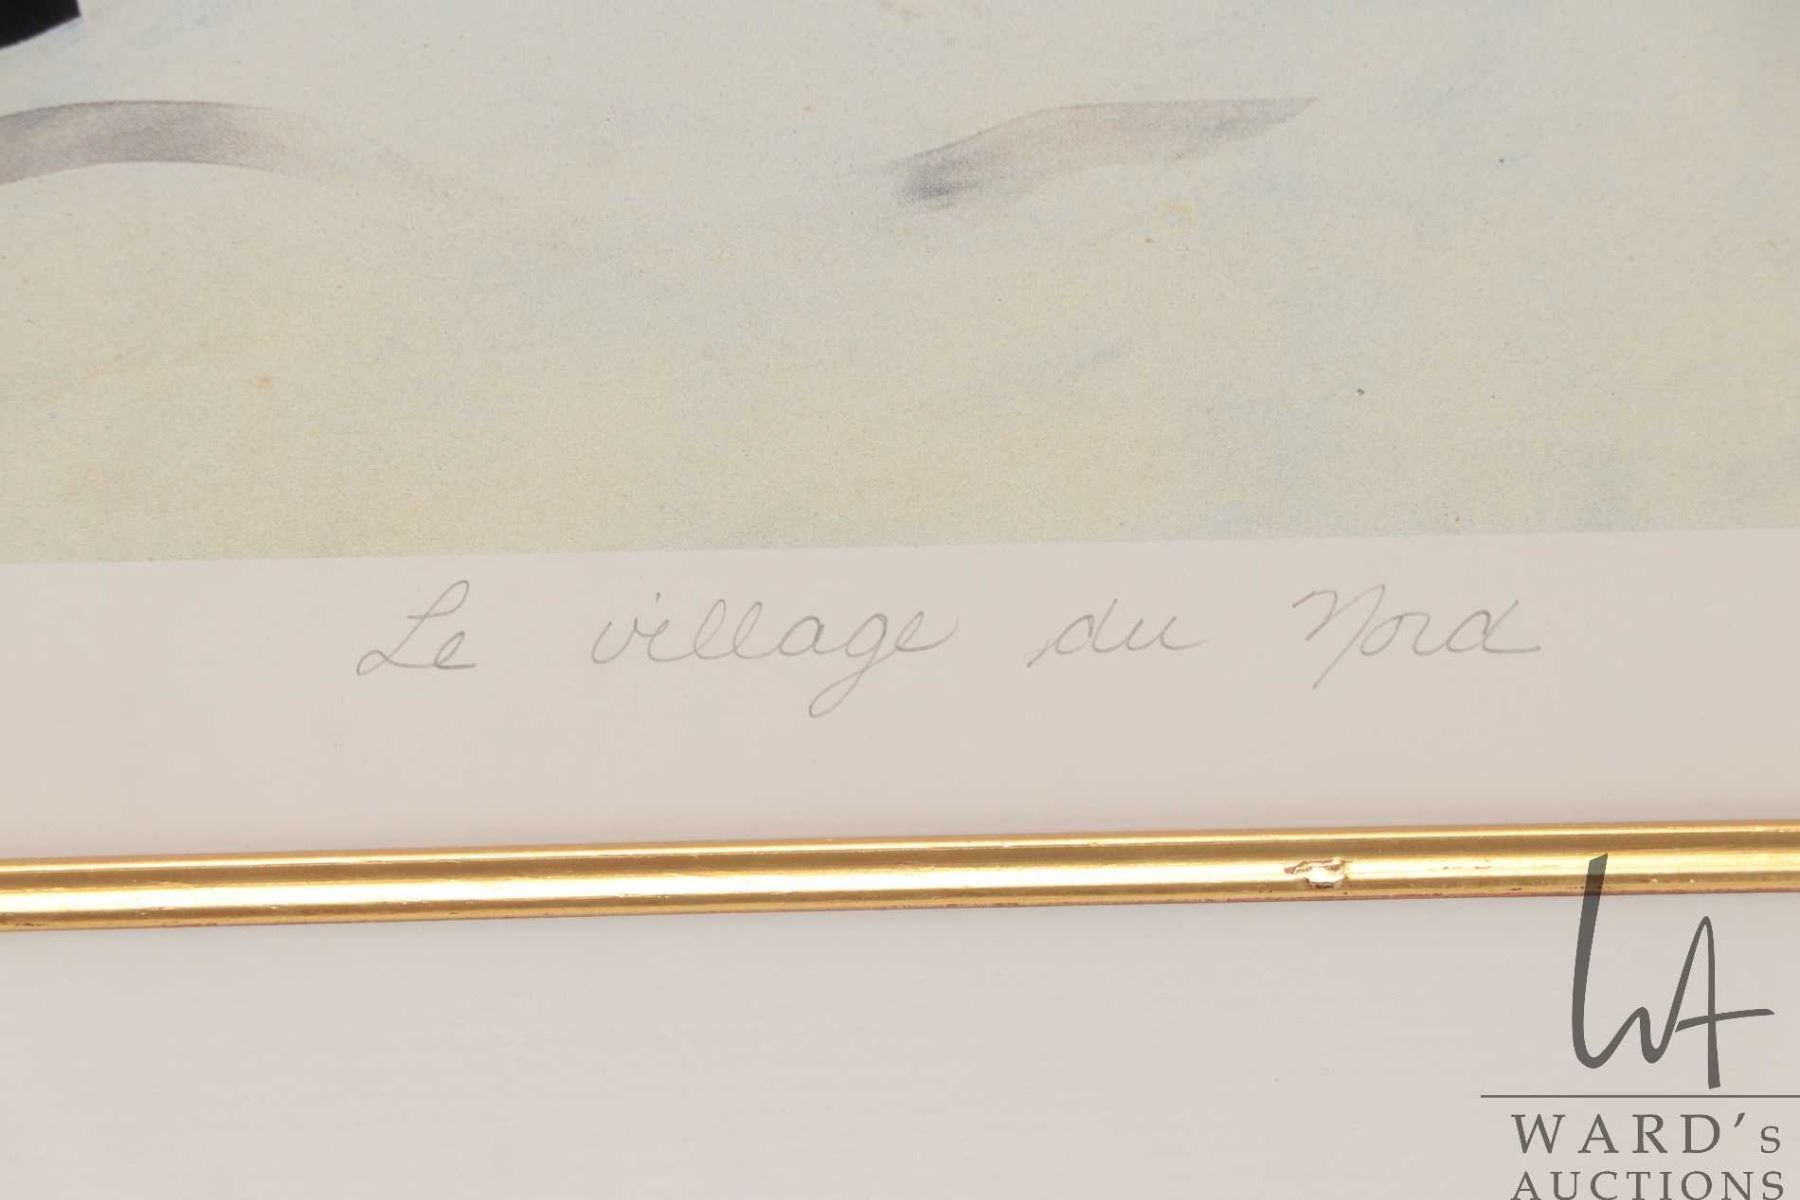 Le village du Nord
WA
WARD's
AUCTIONS